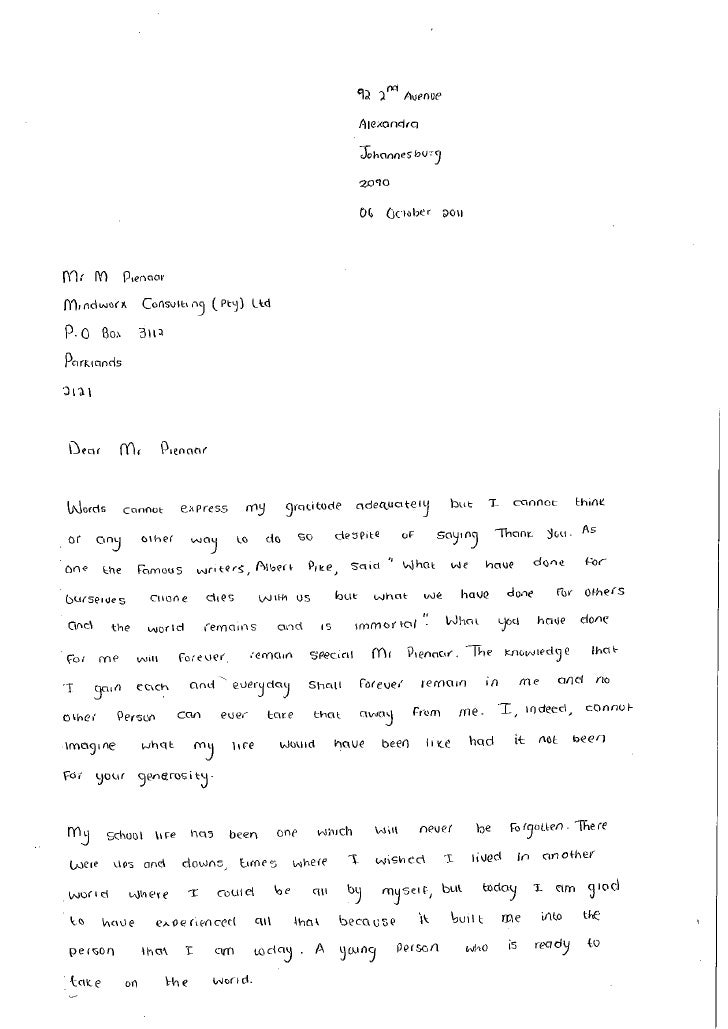 92 2nd Avenue
Alexandra
Johannesburg
2090
06 October 2011
Mr M Pienaar
Mindworx Consulting (Pty) Ltd
P.O Box 3112
Parklands
2121
Dear Mr Pienaar
Words cannot express my gratitude adequately but I cannot think
of any other way to do so despite of saying Thank you. As
one the famous writers, Albert Pike, said "What we have done for
ourselves alone dies with us but what we have done for others
and the world remains and is immortal". What you have done
for me will forever remain special Mr Pienaar. The knowledge that
I gain each and everyday shall forever remain in me and no
other person can ever take that away from me. I, indeed, cannot
imagine what my life would have been like had it not been
for your generosity.
My school life has been one which will never be forgotten. There
were ups and downs, times where I wished I lived in another
world where I could be all by myself, but today I am glad
to have experienced all that because it built me into the
person that I am today. A young person who is ready to
take on the world.